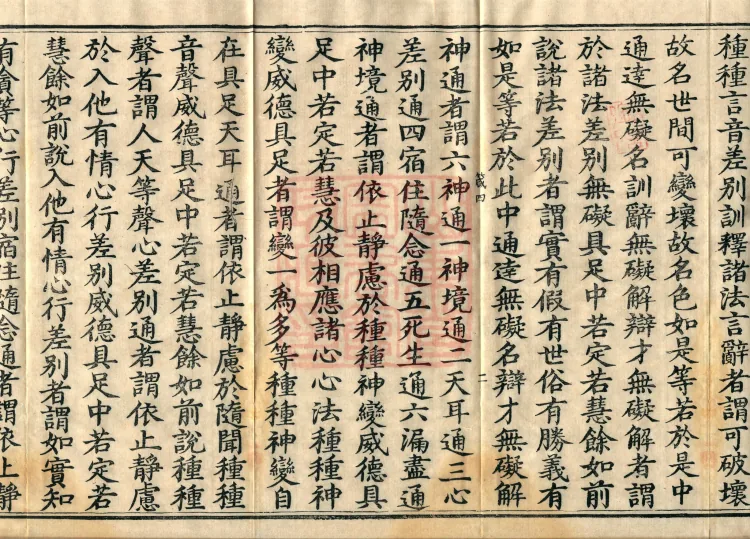 種種言音差別訓釋諸法言辭者謂可破壞
故名世間可變壞故名色如是等若於是中
通達無礙名訓辭無礙解辯才無礙解者謂
於諸法差別無礙具足中若定若慧餘如前
說諸法差別者謂實有假有世俗有勝義有
如是等若於此中通達無礙名辯才無礙解
箴四
二
神通者謂六神通一神境通二天耳通三心
差別通四宿住隨念通五死生通六漏盡通
神境通者謂依止靜慮於種種神變威德具
足中若定若慧及彼相應諸心心法種種神
變威德具足者謂變一為多等種種神變自
在具足天耳通者謂依止靜慮於隨聞種種
音聲威德具足中若定若慧餘如前說種種
聲者謂人天等聲心差別通者謂依止靜慮
於入他有情心行差別威德具足中若定若
慧餘如前說入他有情心行差別者謂如實知
有貪等心行差別宿住隨念通者謂依止靜